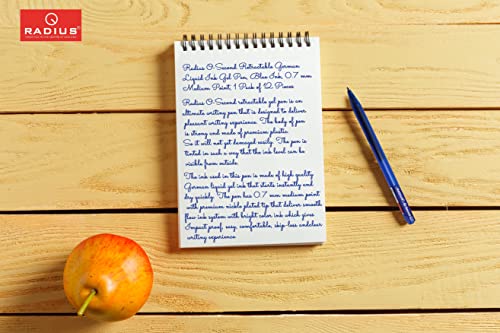 RADIUS®
Radius 0-Second Retractable German
Liquid Ink Gel Pen, Blue Ink, 0.7 mm
Medium Point, 1 Pack of 12 Pieces
Radius 0-Second retractable gel pen is an
ultimate writing pen that is designed to deliver
pleasant writing experience. The body of pen
is strong and made of premium plastic.
So it will not get damaged easily. The pen is
tinted in such a way that the ink level can be
visible from outside.
The ink used in this pen is made of high quality
German liquid gel ink that starts instantly and
dry quickly. The pen has 0.7 mm medium point
with premium nickle plated tip that deliver smooth
flow ink system with bright color ink which gives
Impact proof, easy, comfortable, skip-less andclear
writing experience